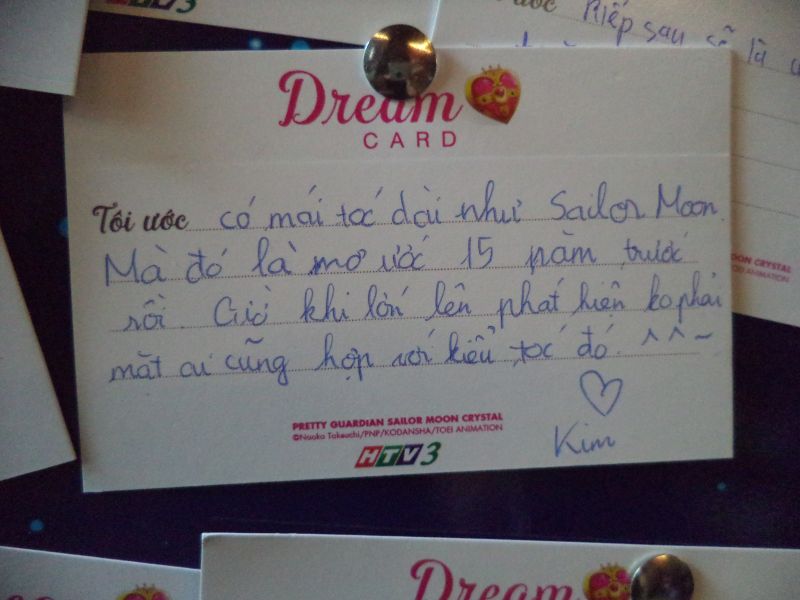 HTV3
ước Kiếp sau sẽ là
Dream
CARD
Tôi ước có mái tóc dài như Sailor Moon.
Mà đó là mơ ước 15 năm trước
rồi. Giờ khi lớn lên phát hiện ko phải
mặt ai cũng hợp với kiểu tóc đó. ^^~
Kim
PRETTY GUARDIAN SAILOR MOON CRYSTAL
©Naoko Takeuchi/PNP/KODANSHA/TOEI ANIMATION
HTV3
MOON CRYSTAL
TOEI ANIMATION
Dream